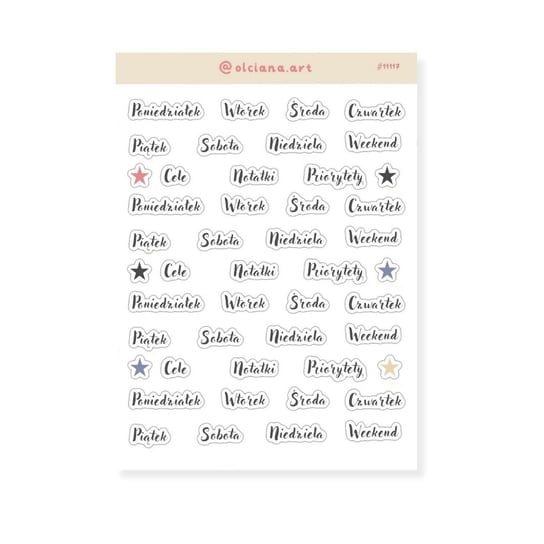 @olciana.art #11117
Poniedziałek Wtorek Środa Czwartek
Piątek Sobota Niedziela Weekend
Cele Notatki Priorytety
Poniedziałek Wtorek Środa Czwartek
Piątek Sobota Niedziela Weekend
Cele Notatki Priorytety
Poniedziałek Wtorek Środa Czwartek
Piątek Sobota Niedziela Weekend
Cele Notatki Priorytety
Poniedziałek Wtorek Środa Czwartek
Piątek Sobota Niedziela Weekend